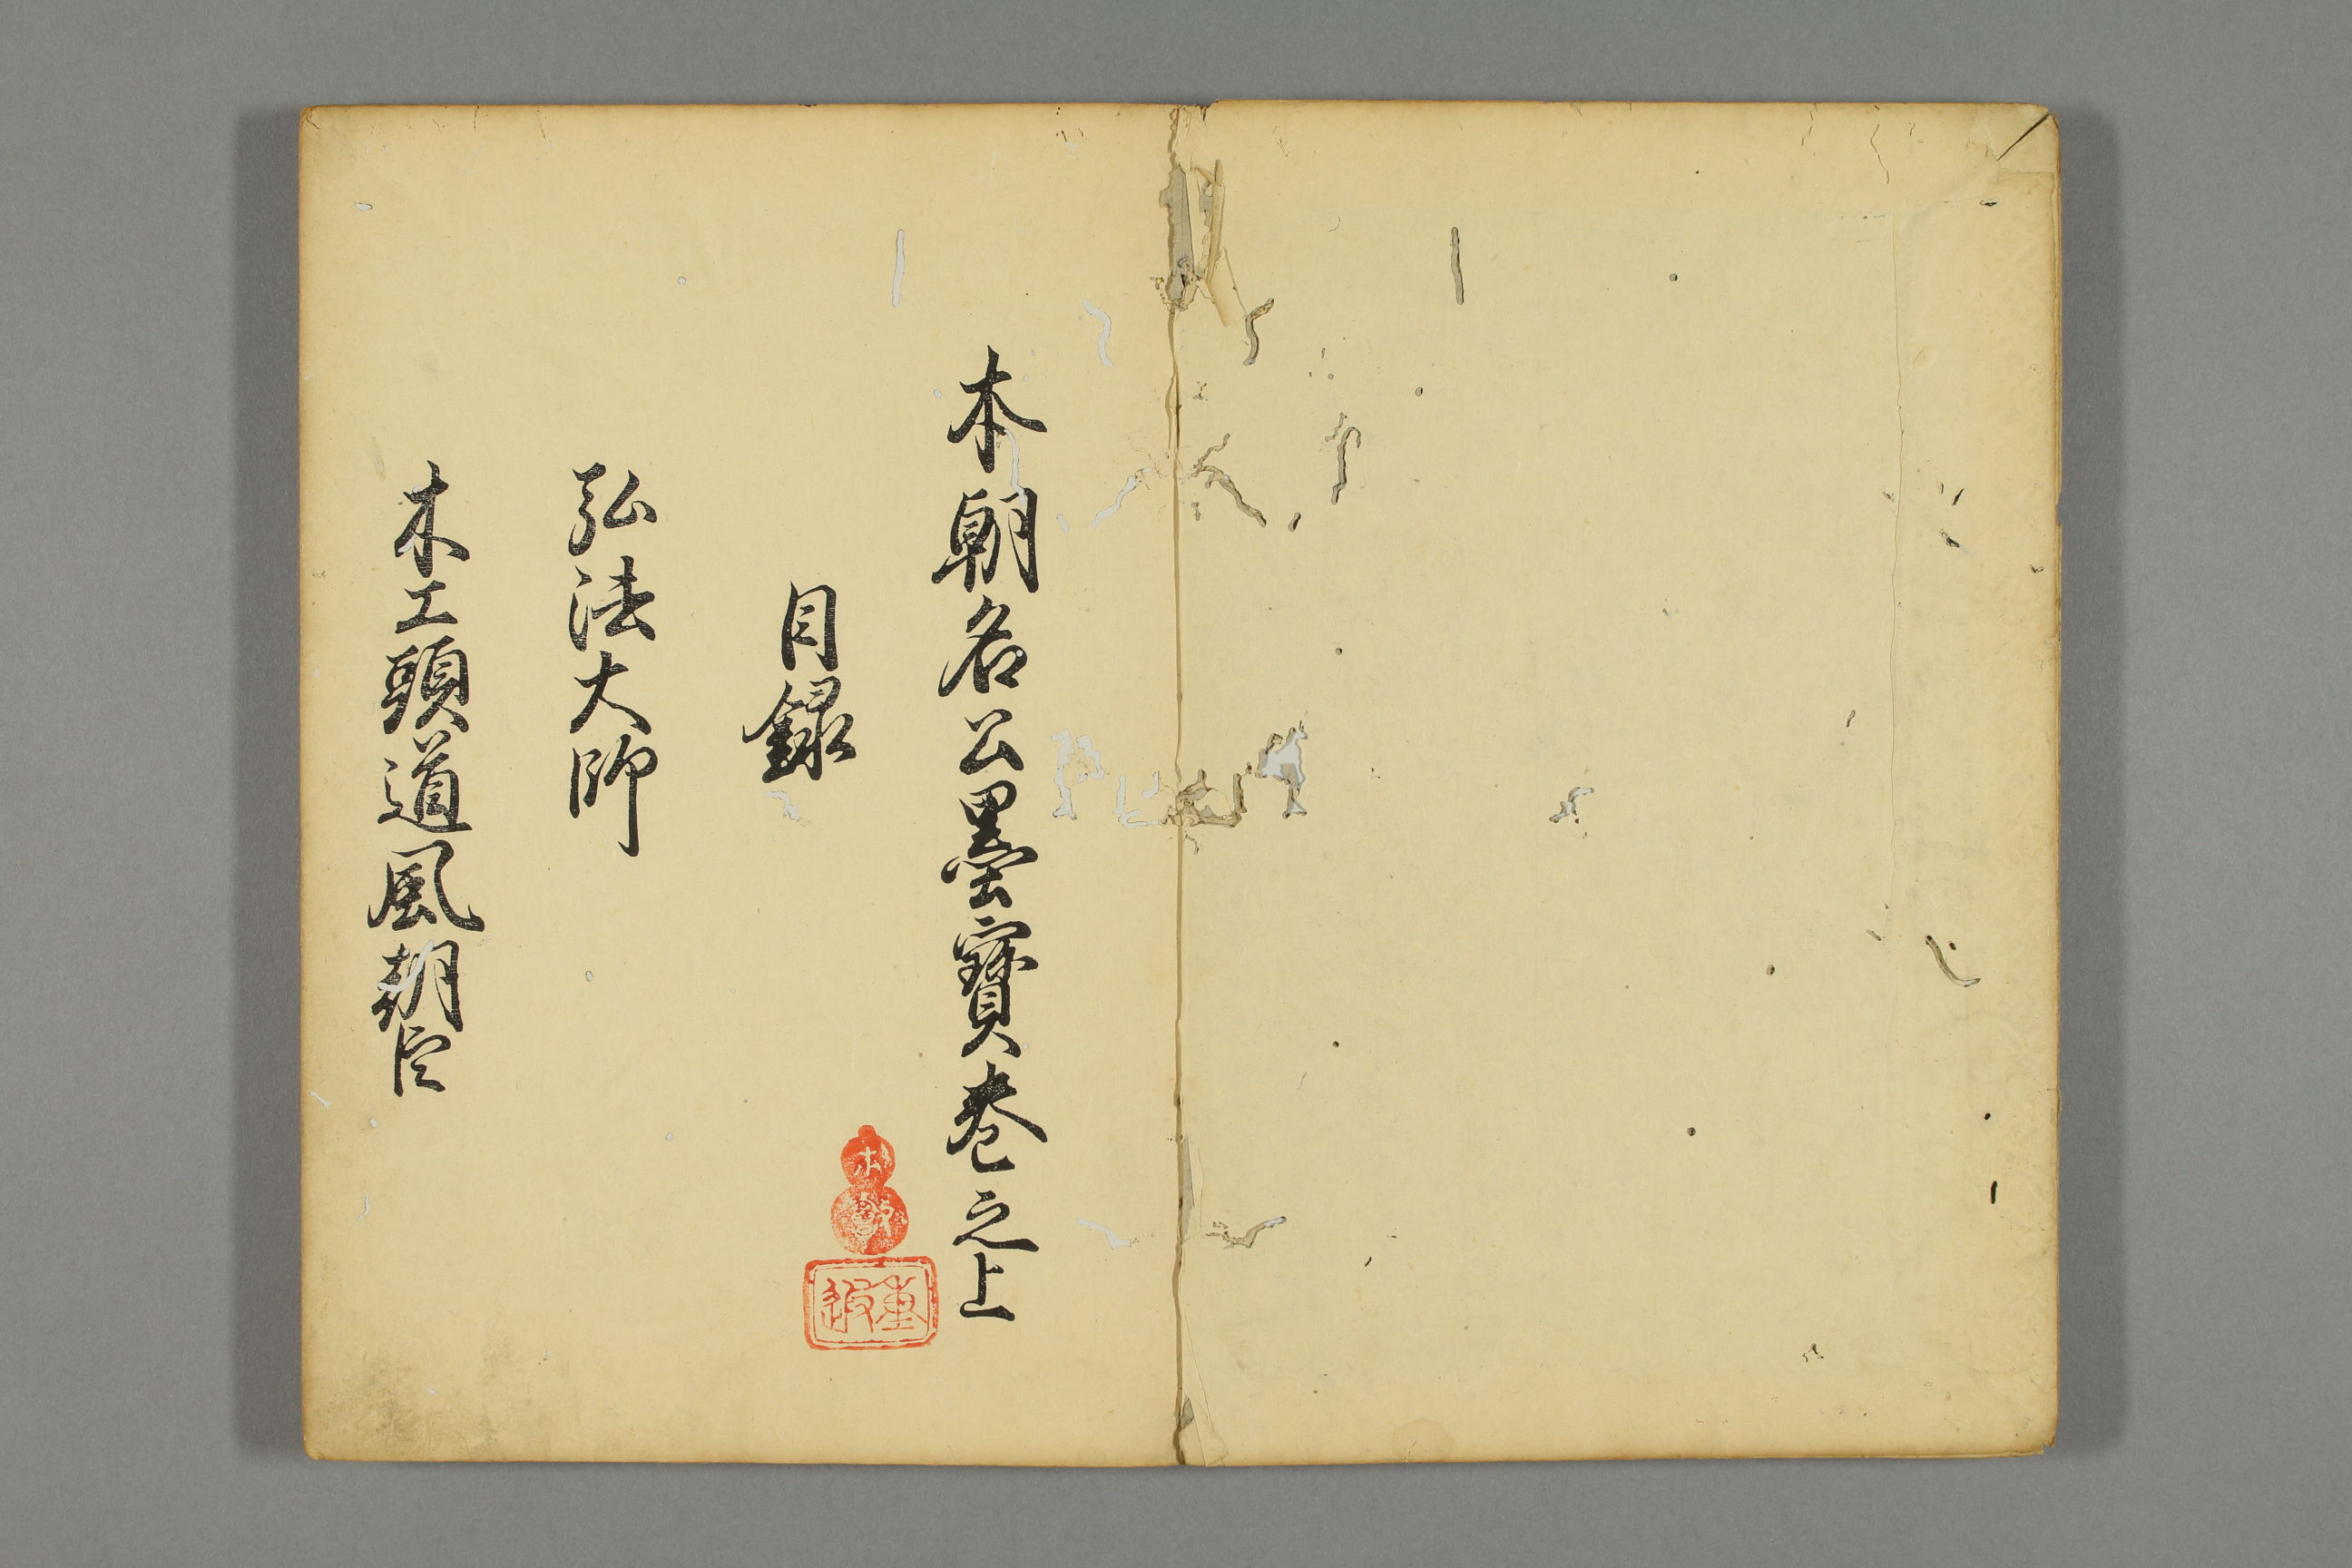 本朝名公墨寶巻之上
目録
弘法大師
木工頭道風朝臣